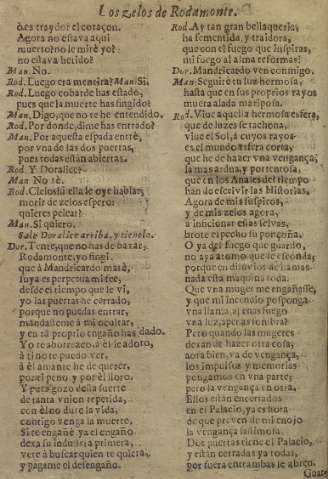 Los zelos de Rodamonte.
o es traydor el coraçon.
Agora no estaua aqui
muerto? no le mirè yo?
no estaua herido?
Man. No.
Rod. Luego era mentira? Man. Si,
Rod. Luego cobarde has estado,
pues que la muerte has fingido?
Man. Digo, que no te he entendido.
Rod. Por donde, dime has entrado?
Man. Por aquesta espada entrè,
por vna de las dos puertas,
pues todas estàn abiertas.
Rod. Y Doralice?
Man No sè.
Rod. Cielos si ella le oye hablar,
morir de zelos espero:
quieres pelear?
Man. Si quiero.
Sale Doralice arriba, y tienelo.
Dor. Tente, que no has de baxar,
Rodamonte, yo fingi
que à Mandricardo matè,
suya es perpetua mi fee,
desde el tiempo que le vi,
yo las puertas he cerrado,
porque no puedas entrar,
mandasteme à mi ocultar,
y en tu proprio engaño has dado.
Yo te aborrezco, à èl le adoro,
à ti no te puedo ver,
à èl amante he de querer,
por el peno, y por èl lloro.
Y pues gozo de la suerte
de tanta vnion repetida,
con èl no dure la vida,
contigo venga la muerte.
Si te engañè ya el engaño
dexa su industria primera,
vete à buscar quien te quiera,
y pagame el desengaño.
Rod. Ay tan gran bellaqueria,
ha fementida, y traidora,
que con el fuego que suspiras,
mi fuego al alma reformas!
Dor. Mandricardo ven conmigo.
Man. Seguirè tu sur hermosa,
hasta que en sus proprios rayos
muera alada mariposa.
Rod. Viue aquella hermosa esfera,
que de luzes se tachona,
viue el Sol, à cuyos rayos
es el mundo esfera corta,
que he de hazer vna vengança,
la mas ardua, y portentosa,
que en los Anales del tiempo
han de escriuir las Historias,
Agora de mis suspiros,
y de mis zelos agora,
à inficionar estas selvas,
brote el pecho su ponçoña.
O ya del fuego que guardo,
no aya atomo que se esconda,
porque en diluuios de llamas
nada esta maquina toda.
Que vna muger me engañasse,
y que mi incendio posponga
vna llama, aì en as fuego
vna luz, apenas sombra!
Pero quando las mugeres
dexan de hazer otra cosa,
aora bien, va de vengança,
los impulsos y memorias
pongamos en vna parte,
pero la vengança en otra,
Ellos estàn encerrados
en el Palacio, ya es hora
de que preuenga mi enojo
la vengança sanguinosa.
Dos puertas tiene el Palacio,
y estàn cerradas ya todas,
por fuera entrambas se abren.
Guar-